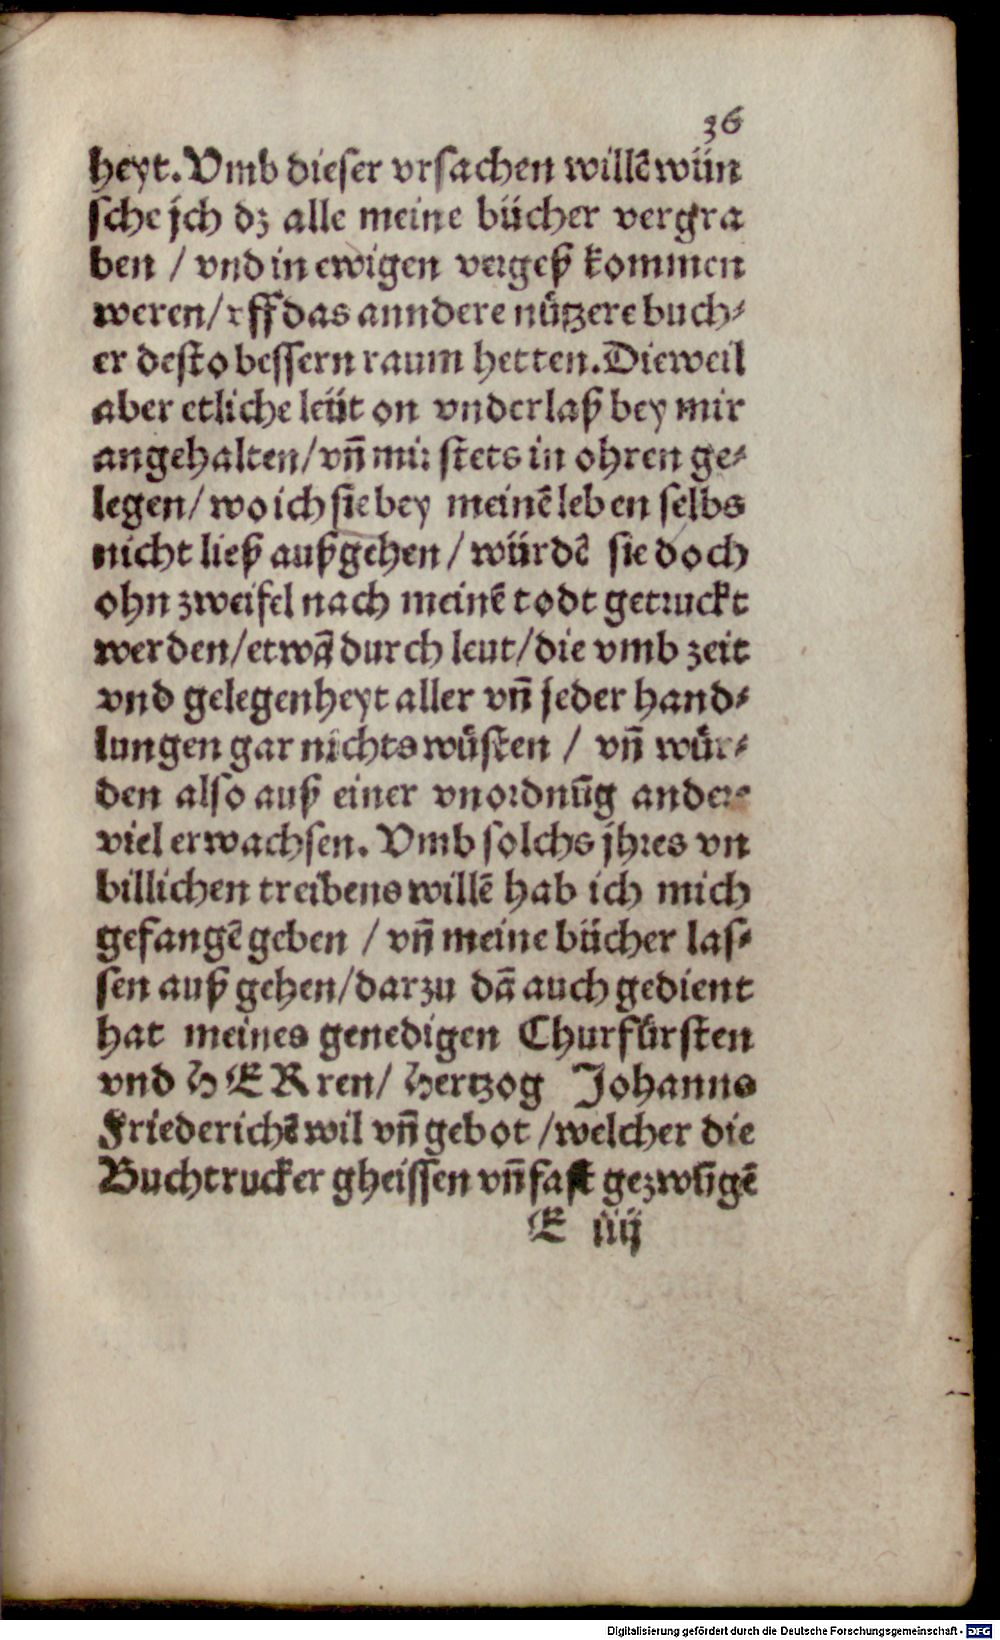 36
heyt. Vmb dieser vrsachen willē wün
sche jch dz alle meine bücher vergra
ben / vnd in ewigen vergeß kommen
weren/ vff das anndere nützere buch-
er desto bessern raum hetten. Dieweil
aber etliche leüt on vnderlaß bey mir
angehalten/ vñ mir stets in ohren ge-
legen/ wo ich sie bey meinē leben selbs
nicht ließ außgehen / würdē sie doch
ohn zweifel nach meinē todt getruckt
werden/ etwā durch leut/ die vmb zeit
vnd gelegenheyt aller vñ jeder hand-
lungen gar nichts wüsten / vñ wür-
den also auß einer vnordnūg ander-
viel erwachsen. Vmb solchs jhres vn
billichen treibens willē hab ich mich
gefangē geben / vñ meine bücher las-
sen auß gehen/ darzu dā auch gedient
hat meines genedigen Churfürsten
vnd HERren/ Hertzog Johanns
Friederichē wil vñ gebot / welcher die
Buchtrucker gheissen vñ fast gezwūgē
E iiij
Digitalisierung gefördert durch die Deutsche Forschungsgemeinschaft - DFG